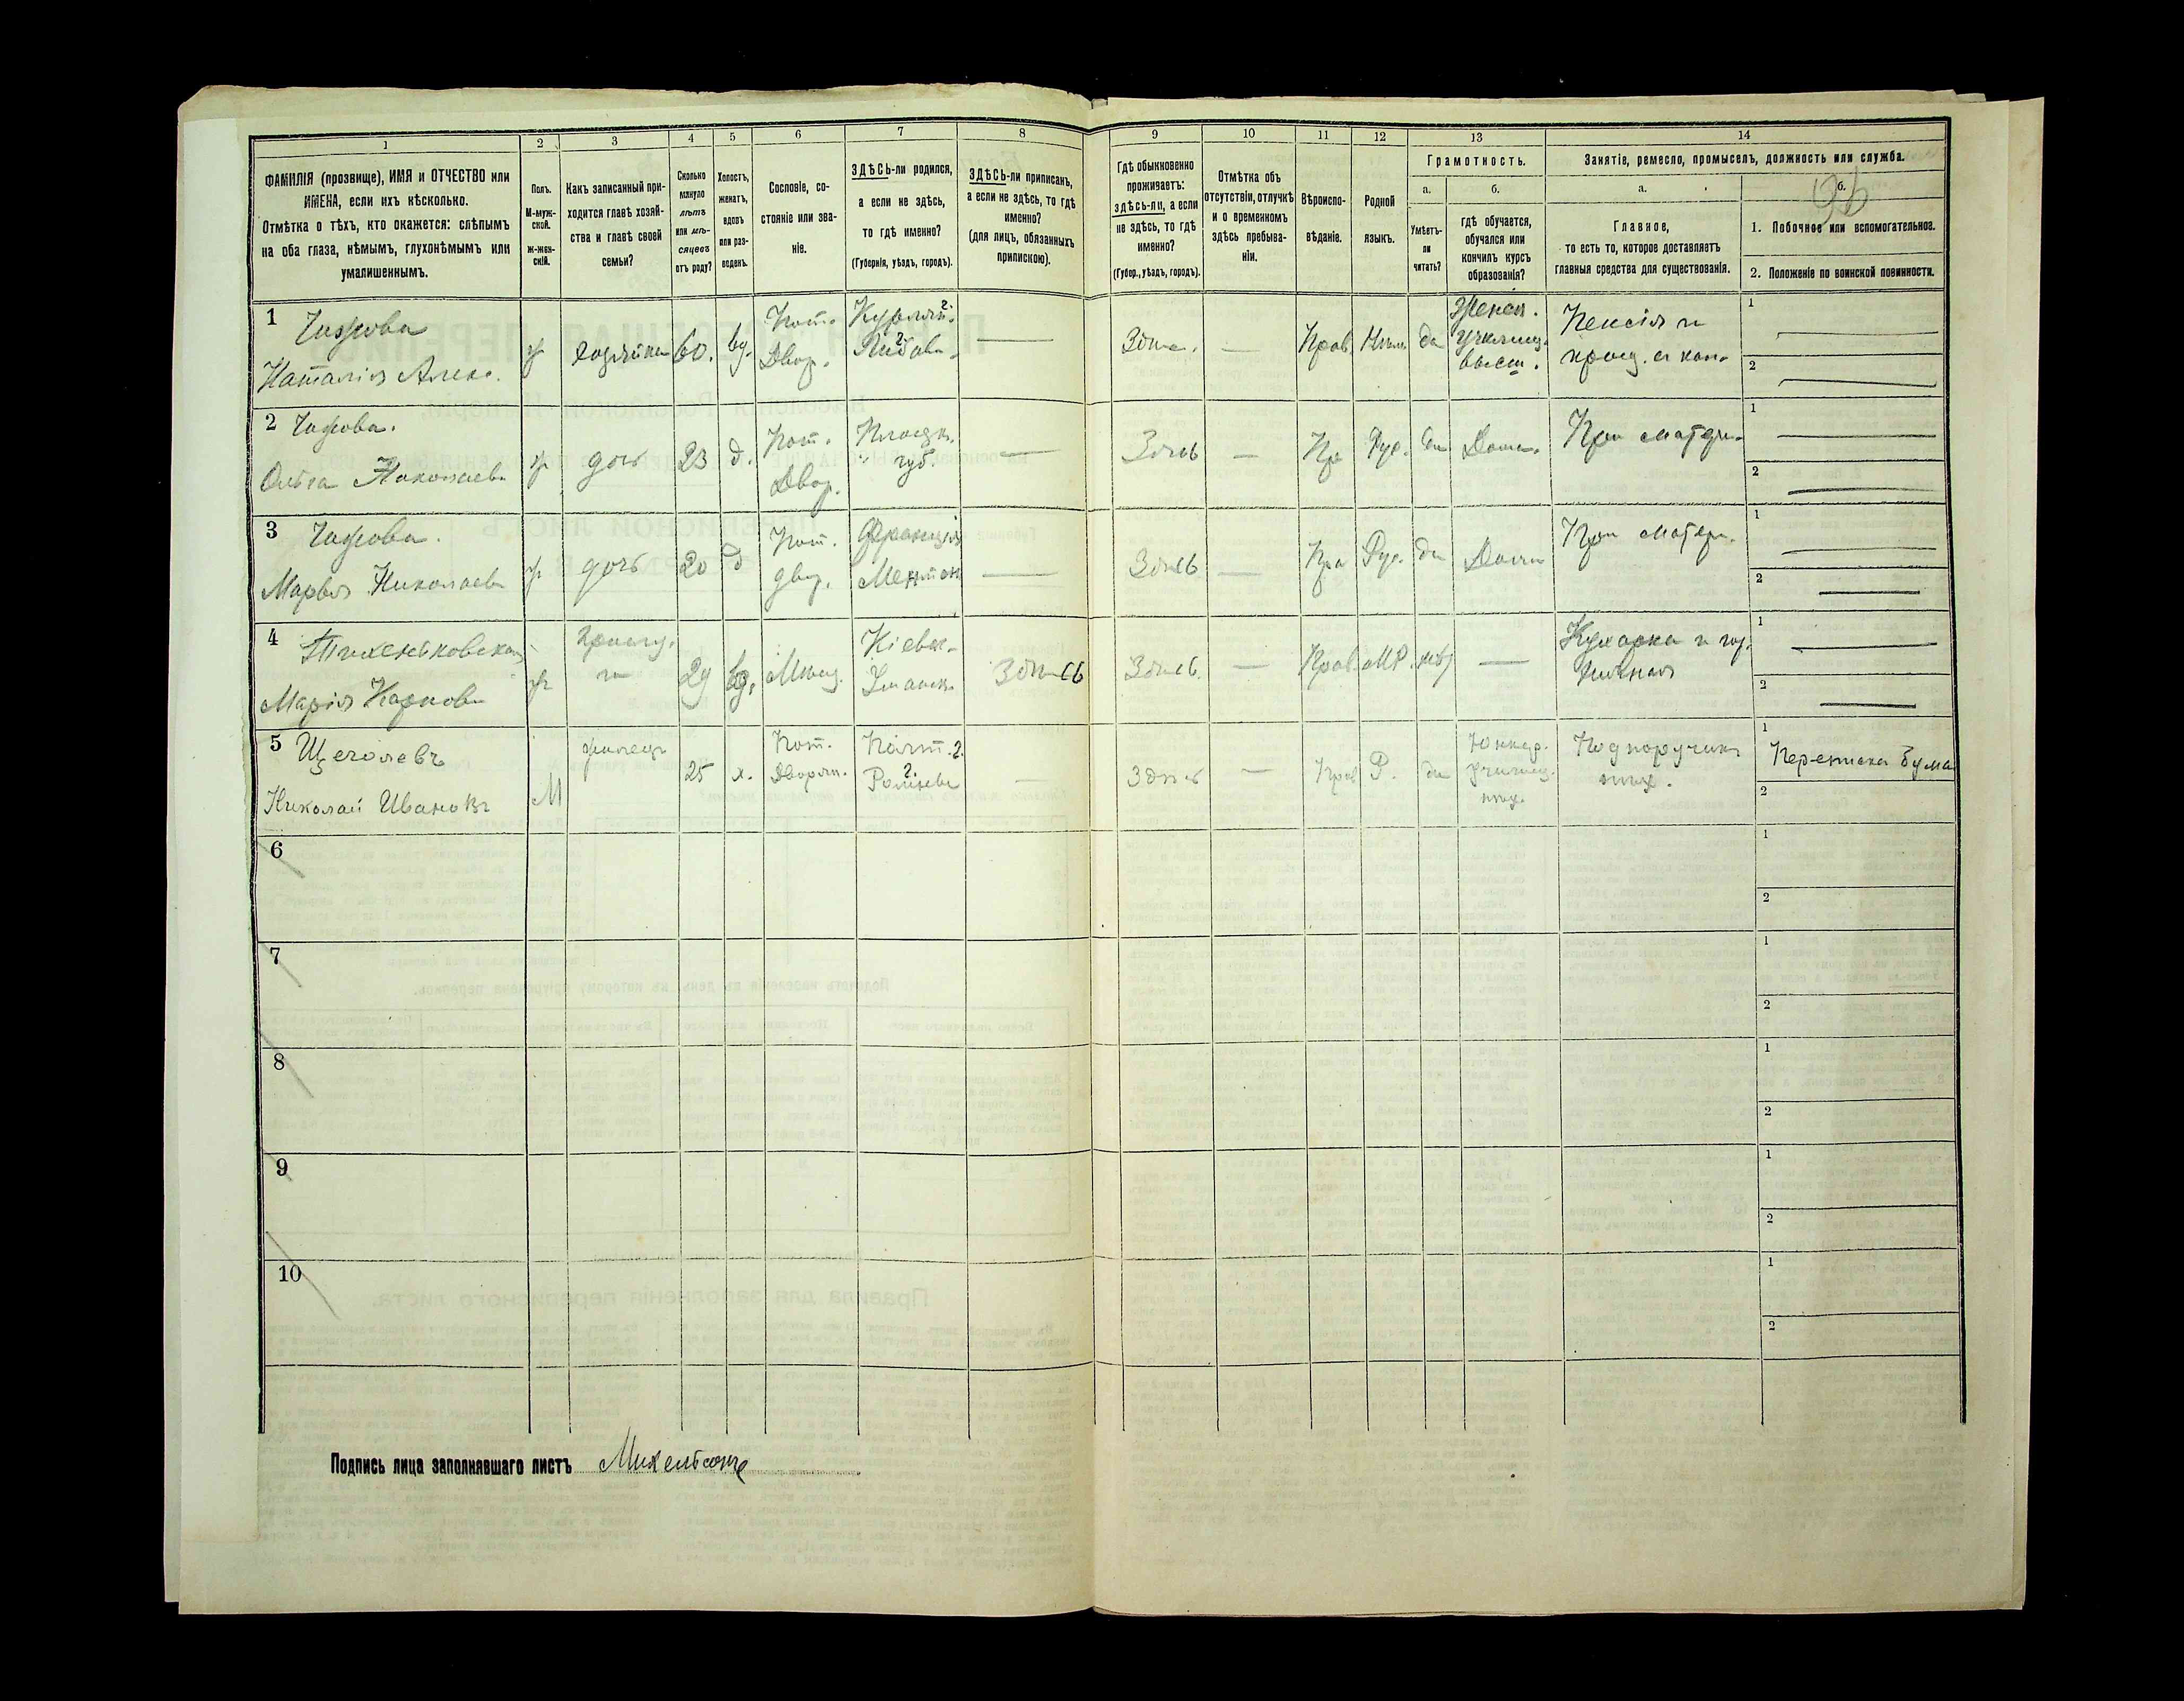 1 2 3 4 5 6 7 8 9 10 11 12 13 14
ФАМИЛІЯ (прозвище), ИМЯ и ОТЧЕСТВО или
ИМЕНА, если ихъ нѣсколько.
Отмѣтка о тѣхъ, кто окажется: слѣпымъ
на оба глаза, нѣмымъ, глухонѣмымъ или
умалишеннымъ.
Полъ.
М-муж-
ской.
ж-жен-
скій.
Какъ записанный при-
ходится главѣ хозяй-
ства и главѣ своей
семьи?
Сколько
минуло
лѣтъ
или мѣ-
сяцевъ
отъ роду?
Холостъ,
женатъ,
вдовъ
или раз-
веденъ.
Сословіе, со-
стояніе или зва-
ніе.
ЗДѢСЬ-ли родился,
а если не здѣсь,
то гдѣ именно?
(Губернія, уѣздъ, городъ).
ЗДѢСЬ-ли приписанъ,
а если не здѣсь, то гдѣ
именно?
(для лицъ, обязанныхъ
припискою).
Гдѣ обыкновенно
проживаетъ:
здѣсь-ли, а если
не здѣсь, то гдѣ
именно?
(Губер., уѣздъ, городъ).
Отмѣтка объ
отсутствіи, отлучкѣ
и о временномъ
здѣсь пребыва-
ніи.
Вѣроиспо-
вѣданіе.
Родной
языкъ.
Грамотность.
а.
Умѣетъ-
ли
читать?
б.
гдѣ обучается,
обучался или
кончилъ курсъ
образованія?
Занятіе, ремесло, промыселъ, должность или служба.
а.
Главное,
то есть то, которое доставляетъ
главныя средства для существованія.
б.
96
1. Побочное или вспомогательное.
2. Положеніе по воинской повинности.
1
Наталія Алекс.
ж
хозяйка
60.
вд.
Пот.
Двор.
Курлян. г.
Либава
Здѣсь.
Прав.
Нѣм.
да
Женск.
училищ.
высш.
Пенсія и
проц. съ кап.
1
2
2
Ольга Николаев
ж
дочь
23
д.
Пот.
Двор.
Плоцк.
губ.
Здѣсь
Пр
Рус.
да
Дома.
При матери.
1
2
3
Марья Николаев
ж
дочь
20
д
Пот.
двор.
Франція
Ментон
Здѣсь
Пра
Рус.
да
Дома
При матери.
1
2
4
Марія Карпова
ж
прислу.
га
29
вд.
Мѣщ.
Кіевск.
Уманск.
Здѣсь
Здѣсь.
Прав.
МР.
нѣт
Кухарка и гор.
ничная
1
2
5 Щеголевъ
Николай Ивановъ
М
жилецъ
25
х.
Пот.
Дворян.
Полт. г.
Ромны
Здѣсь
Прав
Р.
да
Юнкер.
училищ.
пѣх.
Подпоручикъ
пѣх.
1
Переписка бума
2
6
1
2
7
1
2
8
1
2
9
1
2
10
1
2
Подпись лица заполнявшаго листъ Михельсонъ